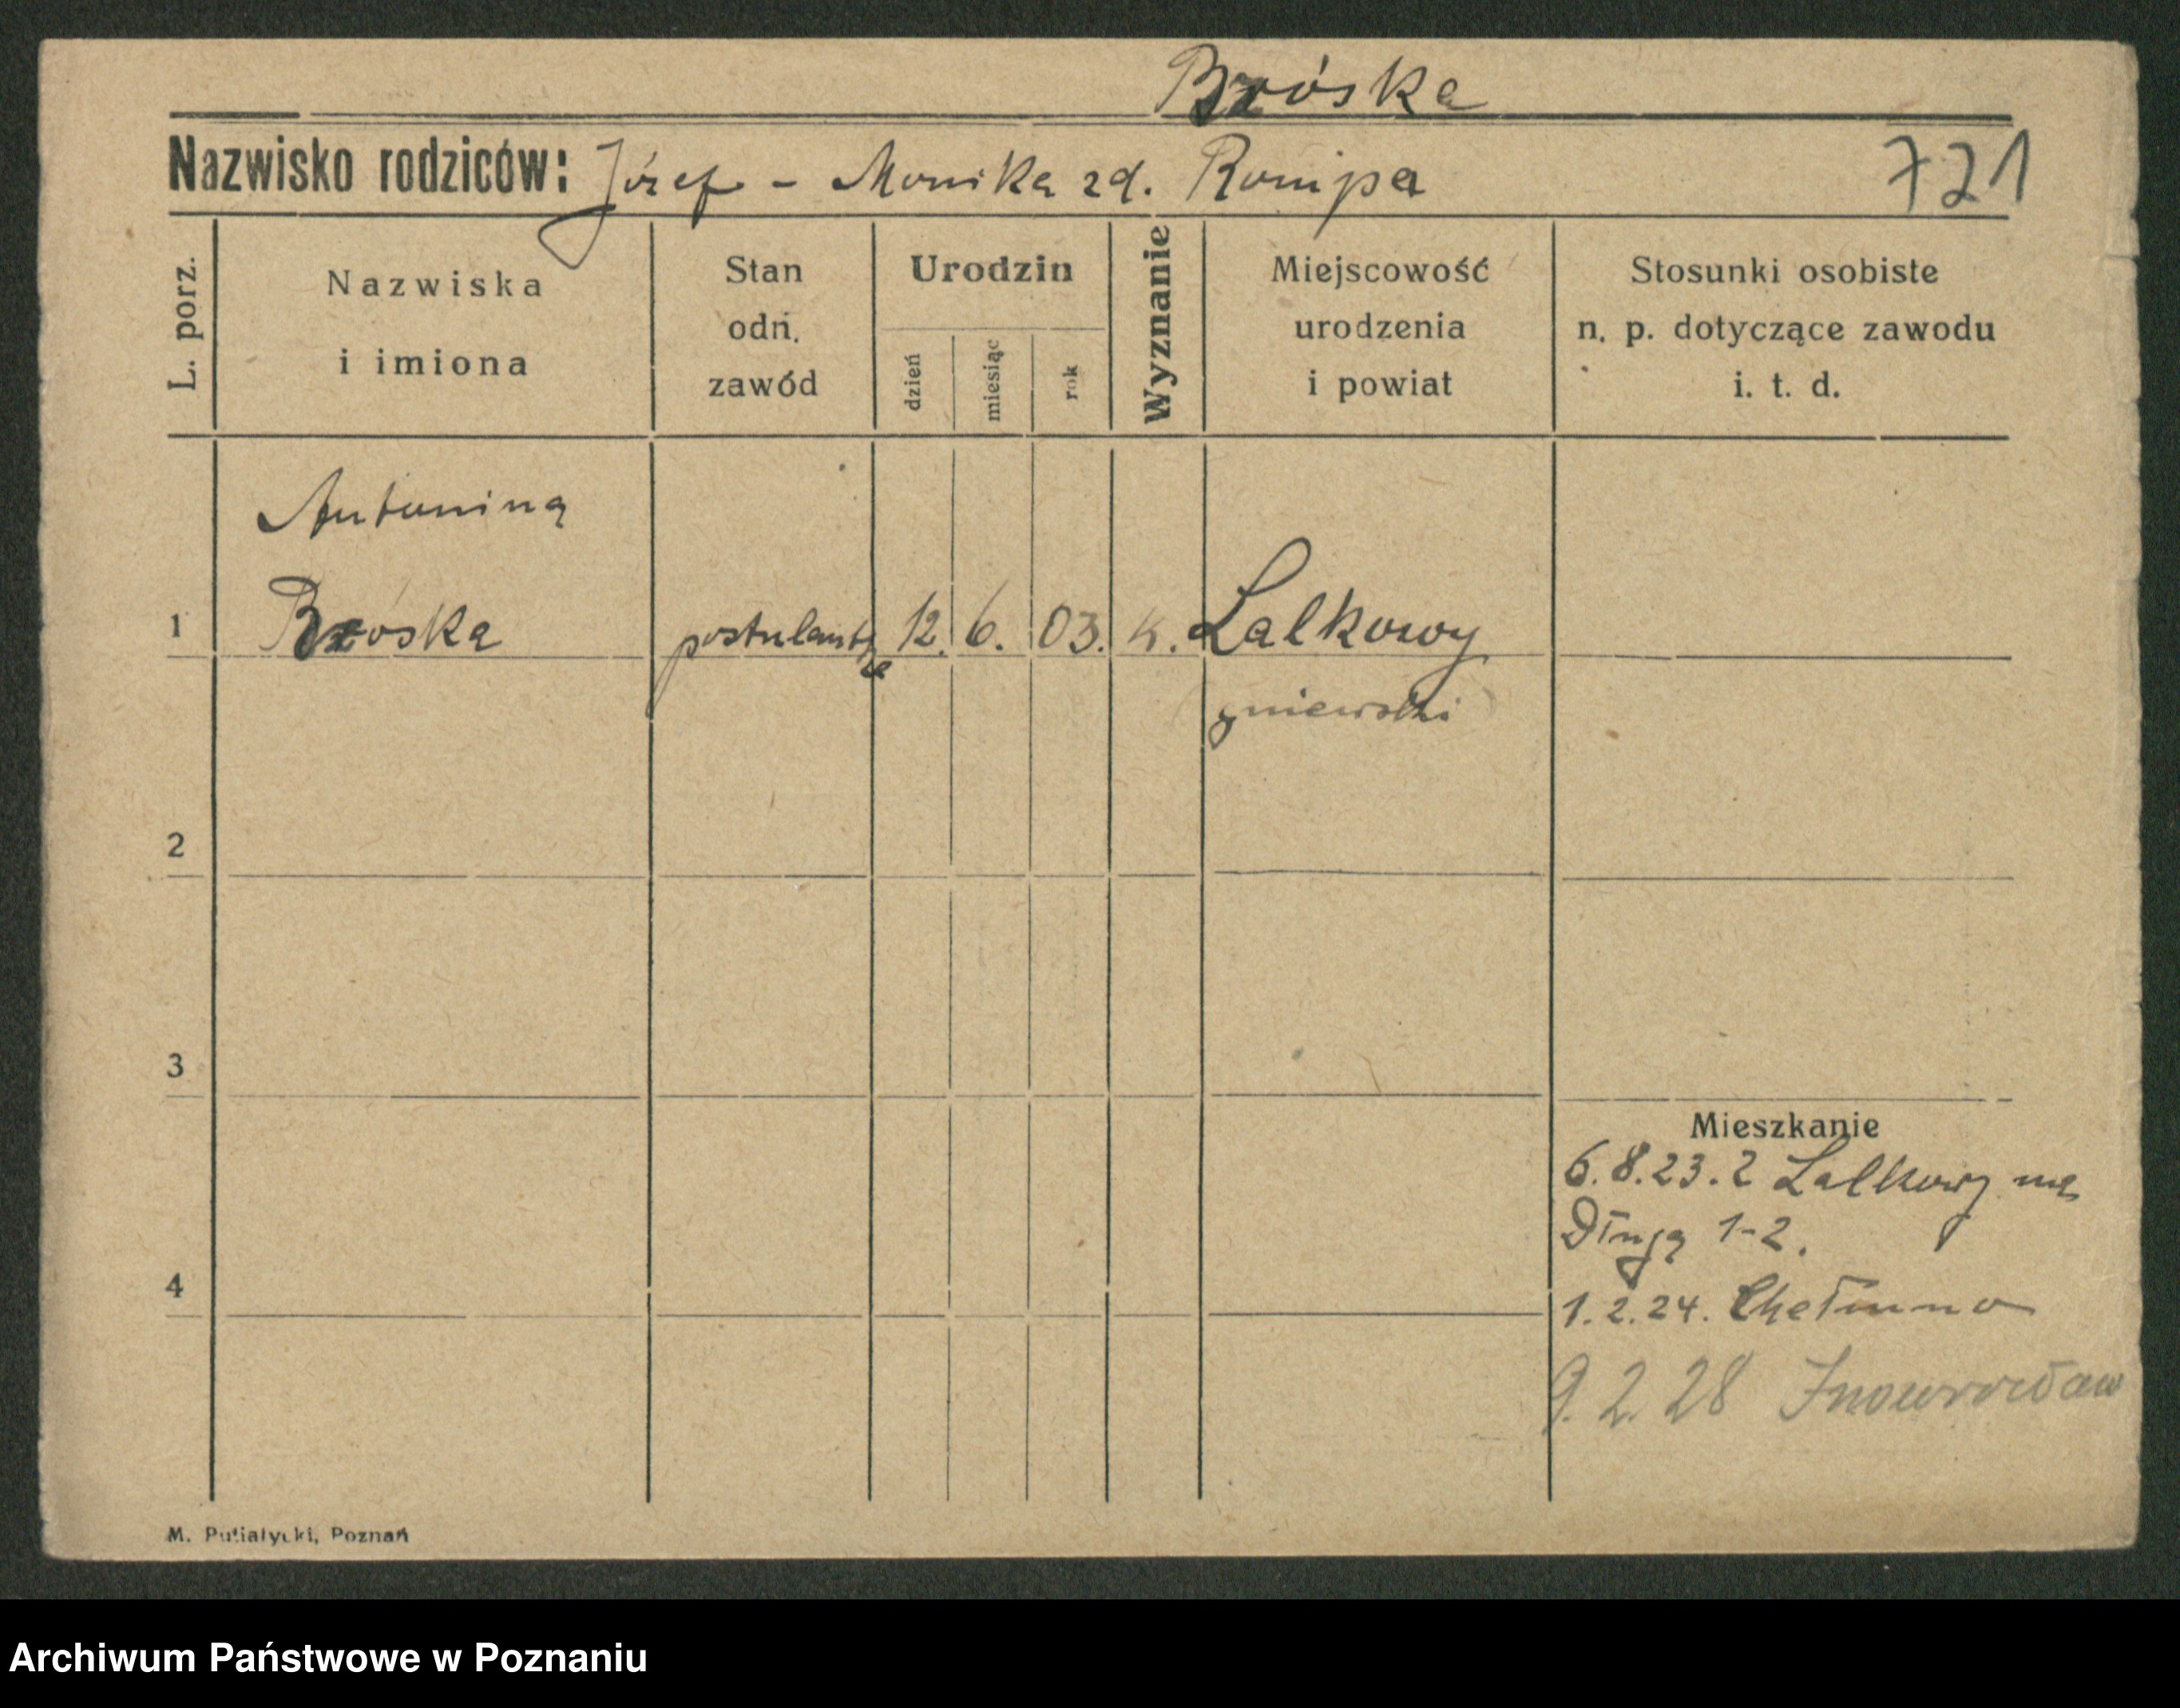 Brzóska
Nazwisko rodziców: Józef - Monika zd. Rompa 721
L. porz.
Nazwiska
i imiona
Stan
odn.
zawód
Urodzin
dzień
miesiąc
rok
Wyznanie
Miejscowość
urodzenia
i powiat
Stosunki osobiste
n. p. dotyczące zawodu
i. t. d.
Antonina
1 Brzoska postulantka 12. 6. 03. k. Lalkowy
gniewski
2
3
Mieszkanie
6.8.23. z Lalkowy na
Długą 1-2.
4
1.2.24. Chełmno
9.2.28 Inowrocław
M. Putiatycki, Poznań
Archiwum Państwowe w Poznaniu